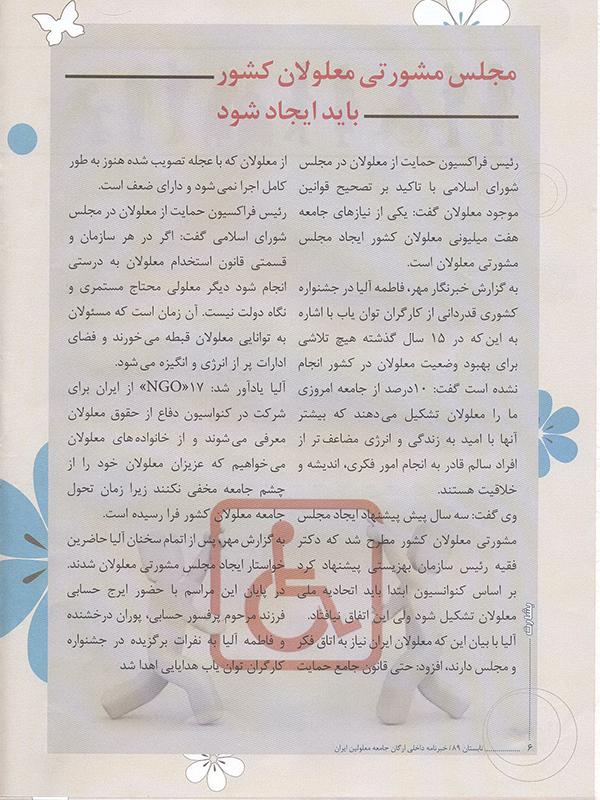 مجلس مشورتی معلولان کشور
باید ایجاد شود
رئیس فراکسیون حمایت از معلولان در مجلس
شورای اسلامی با تاکید بر تصحیح قوانین
موجود معلولان گفت: یکی از نیازهای جامعه
هفت میلیونی معلولان کشور ایجاد مجلس
مشورتی معلولان است.
به گزارش خبرنگار مهر، فاطمه آلیا در جشنواره
کشوری قدردانی از کارگران توان یاب با اشاره
به این که در ۱۵ سال گذشته هیچ تلاشی
برای بهبود وضعیت معلولان در کشور انجام
نشده است گفت: ۱۰درصد از جامعه امروزی
ما را معلولان تشکیل می‌دهند که بیشتر
آنها با امید به زندگی و انرژی مضاعف‌تر از
افراد سالم قادر به انجام امور فکری، اندیشه و
خلاقیت هستند.
وی گفت: سه سال پیش پیشنهاد ایجاد مجلس
مشورتی معلولان کشور مطرح شد که دکتر
فقیه رئیس سازمان بهزیستی پیشنهاد کرد
بر اساس کنوانسیون ابتدا باید اتحادیه ملی
معلولان تشکیل شود ولی این اتفاق نیافتاد.
آلیا با بیان این که معلولان ایران نیاز به اتاق فکر
و مجلس دارند، افزود: حتی قانون جامع حمایت
از معلولان که با عجله تصویب شده هنوز به طور
کامل اجرا نمی‌شود و دارای ضعف است.
رئیس فراکسیون حمایت از معلولان در مجلس
شورای اسلامی گفت: اگر در هر سازمان و
قسمتی قانون استخدام معلولان به درستی
انجام شود دیگر معلولی محتاج مستمری و
نگاه دولت نیست. آن زمان است که مسئولان
به توانایی معلولان قبطه می‌خورند و فضای
ادارات پر از انرژی و انگیزه می‌شود.
آلیا یادآور شد: ۱۷«NGO» از ایران برای
شرکت در کنواسیون دفاع از حقوق معلولان
معرفی می‌شوند و از خانواده‌های معلولان
می‌خواهیم که عزیزان معلولان خود را از
چشم جامعه مخفی نکنند زیرا زمان تحول
جامعه معلولان کشور فرا رسیده است.
به گزارش مهر، پس از اتمام سخنان آلیا حاضرین
خواستار ایجاد مجلس مشورتی معلولان شدند.
در پایان این مراسم با حضور ایرج حسابی
فرزند مرحوم پرفسور حسابی، پوران درخشنده
و فاطمه آلیا به نفرات برگزیده در جشنواره
کارگران توان یاب هدایایی اهدا شد
بشارت
۶ تابستان ۸۹/ خبرنامه داخلی ارگان جامعه معلولین ایران